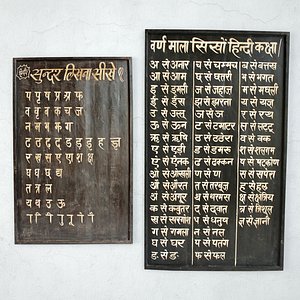 सुन्दर लिखना सीखें
प पृ ष प्र फ्र फ
व वृ ब क ज
न म भ क ग
ट ठ द ढ ड ड़ ह ज्ञ
र स रा ए श क्ष
प ध घ थ
त त्र ल
य थ उ ऊ
वर्ण माला सिखों हिन्दी कक्षा
अ से अनार च से चम्मच ब से बत्तख
आ से आम छ से छतरी भ से भगत
इ से इमली ज से जहाज म से मछली
ई से ईख झ से झरना य से यज्ञ
उ से उल्लू ञ से ञ र से रथ
ऊ से ऊन ट से टमाटर ल से लट्टू
ऋ से ऋषि ठ से ठठेरा व से वक
ए से एड़ी ड से डमरू श से शलगम
ऐ से ऐनक ढ से ढक्कन ष से षट्कोण
ओ से ओखली ण से ण स से सपेरा
औ से औरत त से तरबूज ह से हल
अं से अंगूर थ से थरमस क्ष से क्षत्रिय
क से कबूतर द से दवात त्र से त्रिशूल
ख से खरगोश ध से धनुष ज्ञ से ज्ञानी
ग से गमला न से नल
घ से घर प से पतंग
ङ से ङ फ से फल